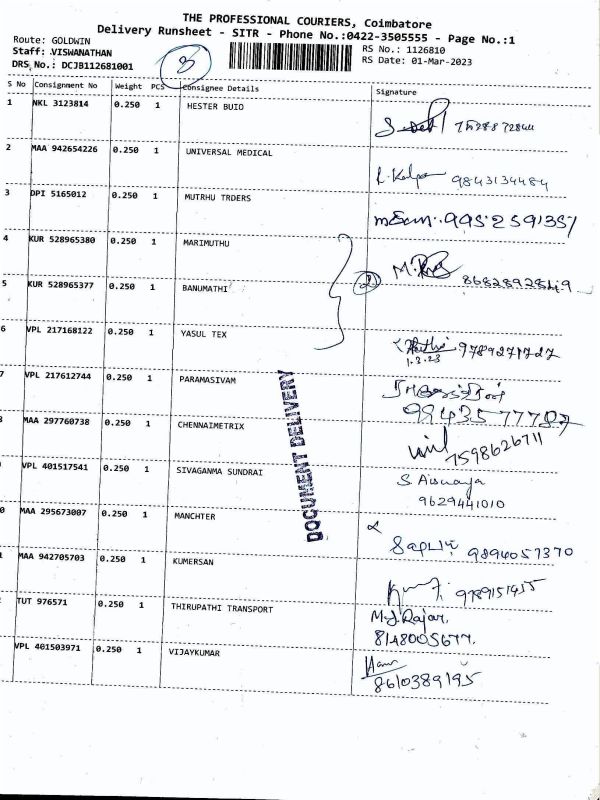 THE PROFESSIONAL COURIERS, Coimbatore
Delivery Runsheet - SITR - Phone No.:0422-3505555 - Page No.:1
Route: GOLDWIN
Staff: VISWANATHAN
DRS No.: DCJB112681001
3
RS No.: 1126810
RS Date: 01-Mar-2023
S No Consignment No Weight PCS Consignee Details Signature
1 NKL 3123814 0.250 1 HESTER BUIO
2 MAA 942654226 0.250 1 UNIVERSAL MEDICAL 9843134484
3 DPI 5165012 0.250 1 MUTRHU TRDERS 9952591357
4 KUR 528965380 0.250 1 MARIMUTHU
5 KUR 528965377 0.250 1 BANUMATHI 2
6 VPL 217168122 0.250 1 YASUL TEX 9789271727
1.3.23
7 VPL 217612744 0.250 1 PARAMASIVAM
99435 77787
MAA 297760738 0.250 1 CHENNAIMETRIX 7598626711
VPL 401517541 0.250 1 SIVAGANMA SUNDRAI S. Aiswarya
9629441010
0 MAA 295673007 0.250 1 MANCHTER 9894057370
MAA 942705703 0.250 1 KUMERSAN
TUT 976571 0.250 1 THIRUPATHI TRANSPORT M.J.Rajar.
8148005677.
VPL 401503971 0.250 1 VIJAYKUMAR
8610389195
DOCUMENT DELIVERY